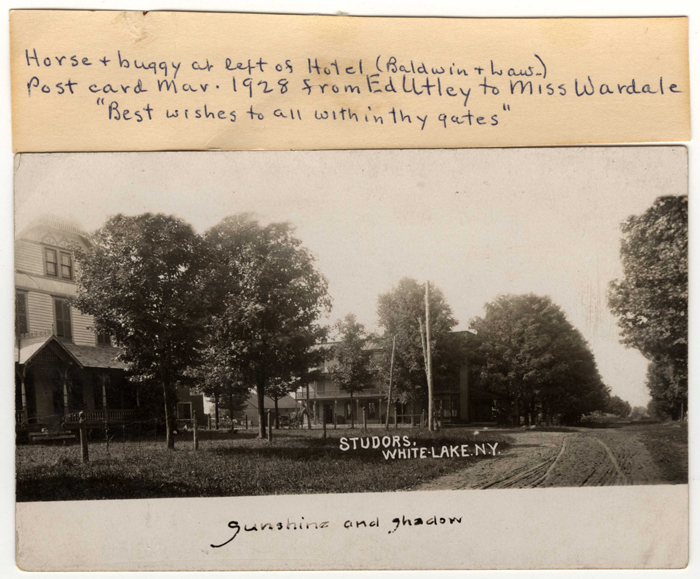 Horse + buggy at left of Hotel (Baldwin + Law..)
Post card Mar. 1928 from Ed Utley to Miss Wardale
"Best wishes to all within thy gates"
STUDORS.
WHITE-LAKE. N.Y.
Sunshine and Shadow